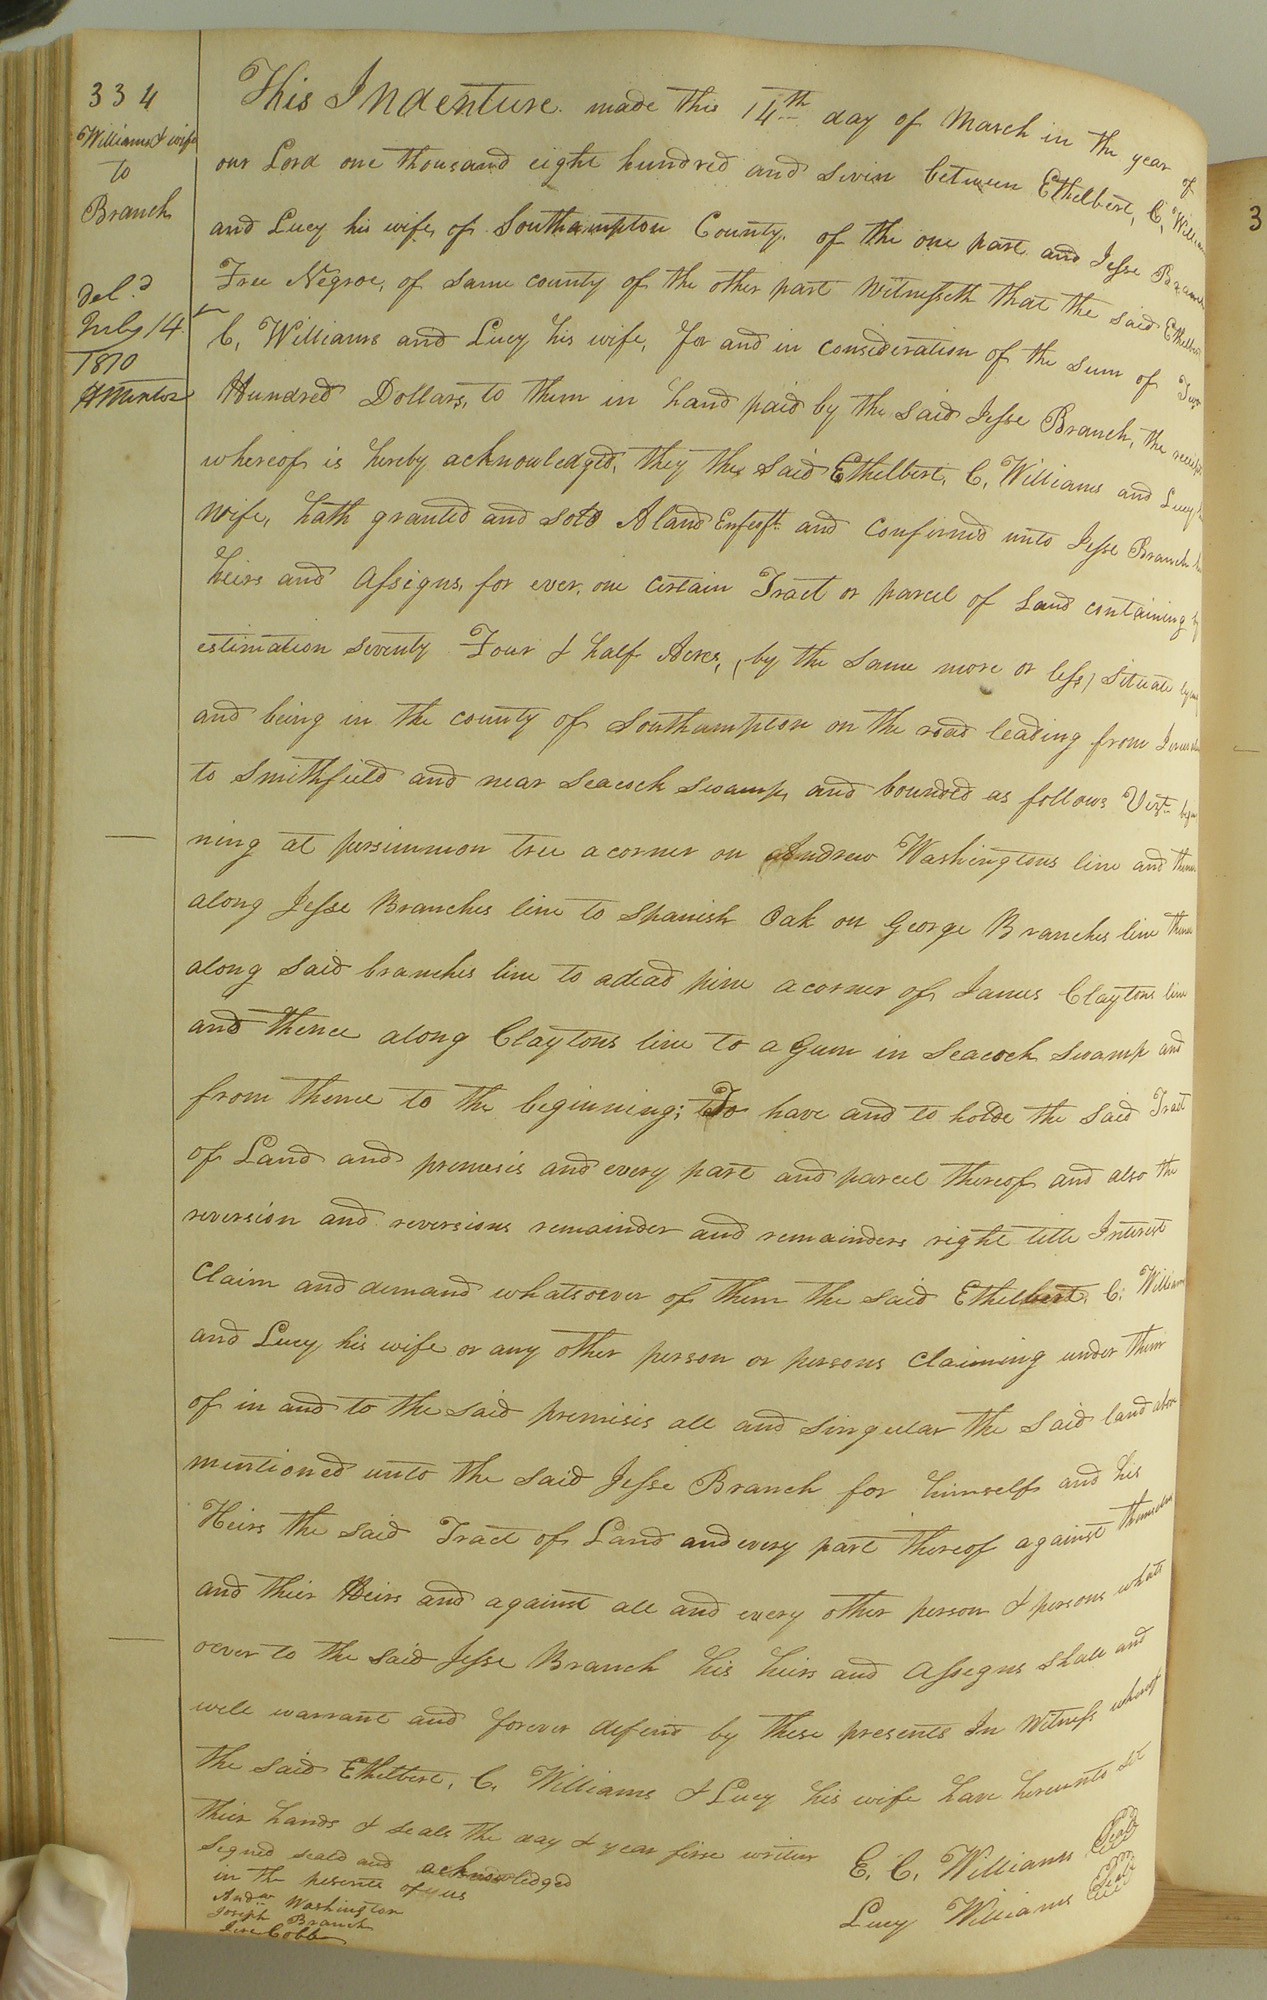 334
Williams & wife
to
Branch
Del.d
July 14
1810
This Indenture made this 14th day of March in the year of
our Lord one thousand eight hundred and seven between Ethelbert, C, Williams
and Lucy his wife, of Southampton County, of the one part and Jesse Branch
Free Negroe, of same county of the other part Witnesseth that the said Ethelbert
C, Williams and Lucy his wife, for and in consideration of the sum of Two
Hundred Dollars, to them in hand paid by the said Jesse Branch, the receipt
whereof is hereby acknowledged, they the said Ethelbert, C, Williams and Lucy his
wife, hath granted and sold Aland Enfeoft and confirmed unto Jesse Branch his
heirs and Assigns, for ever, one certain Tract or parcel of Land containing by
estimation seventy Four & half Acres, (by the same more or less) situate lying
and being in the county of Southampton on the road leading from Jerusalem
to Smithfield and near Seacock Swamp, and bounded as follows Vizt. begin
ning at persimmon tree a corner on Andrew Washingtons line and thence
along Jesse Branches line to Spanish Oak on George Branches line thence
along said branches line to adead pine acorner of James Claytons line
and thence along Claytons line to a Gum in Seacock Swamp and
from thence to the beginning; To have and to holde the said Tract
of Land and premesis and every part and parcel thereof and also the
reversion and reversions remainder and remainders right title Interest
Claim and demand whatsoever of them the said Ethelbert, C. Williams
and Lucy his wife or any other person or persons claiming under them
of in and to the said premisis all and singular the said land above
mentioned unto the said Jesse Branch for himself and his
Heirs the said Tract of Land and every part thereof against themselves
and their Heirs and against all and every other person & persons whats
oever to the said Jesse Branch his heirs and Assegns shall and
well warrant and forever defend by these presents In Witness whereof
the said Ethelbert, C. Williams & Lucy his wife have hereunto set
their hands & seals the day & year first writen
Segned seald and acknowledged
in the pesents of us
Andw Washington
Joseph Branch
Jere Cobb
E. C. Williams Seal
Lucy Williams Seal
3